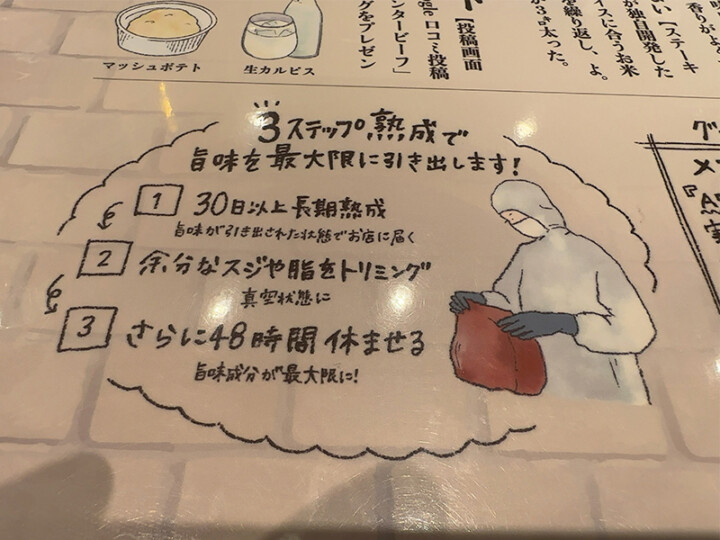 マッシュポテト
生カルピス
【投稿画面
gle 口コミ投稿
ンタービーフ」
グをプレゼン
い【ステーキ
が独自開発した
イスに合うお米
を繰り返し、よ
太った。
香りが
3ステップ熟成で
旨味を最大限に引き出します!
1 30日以上長期熟成
旨味が引き出された状態でお店に届く
2 余分なスジや脂をトリミング
真空状態に
3 さらに48時間休ませる
旨味成分が最大限に!
グ